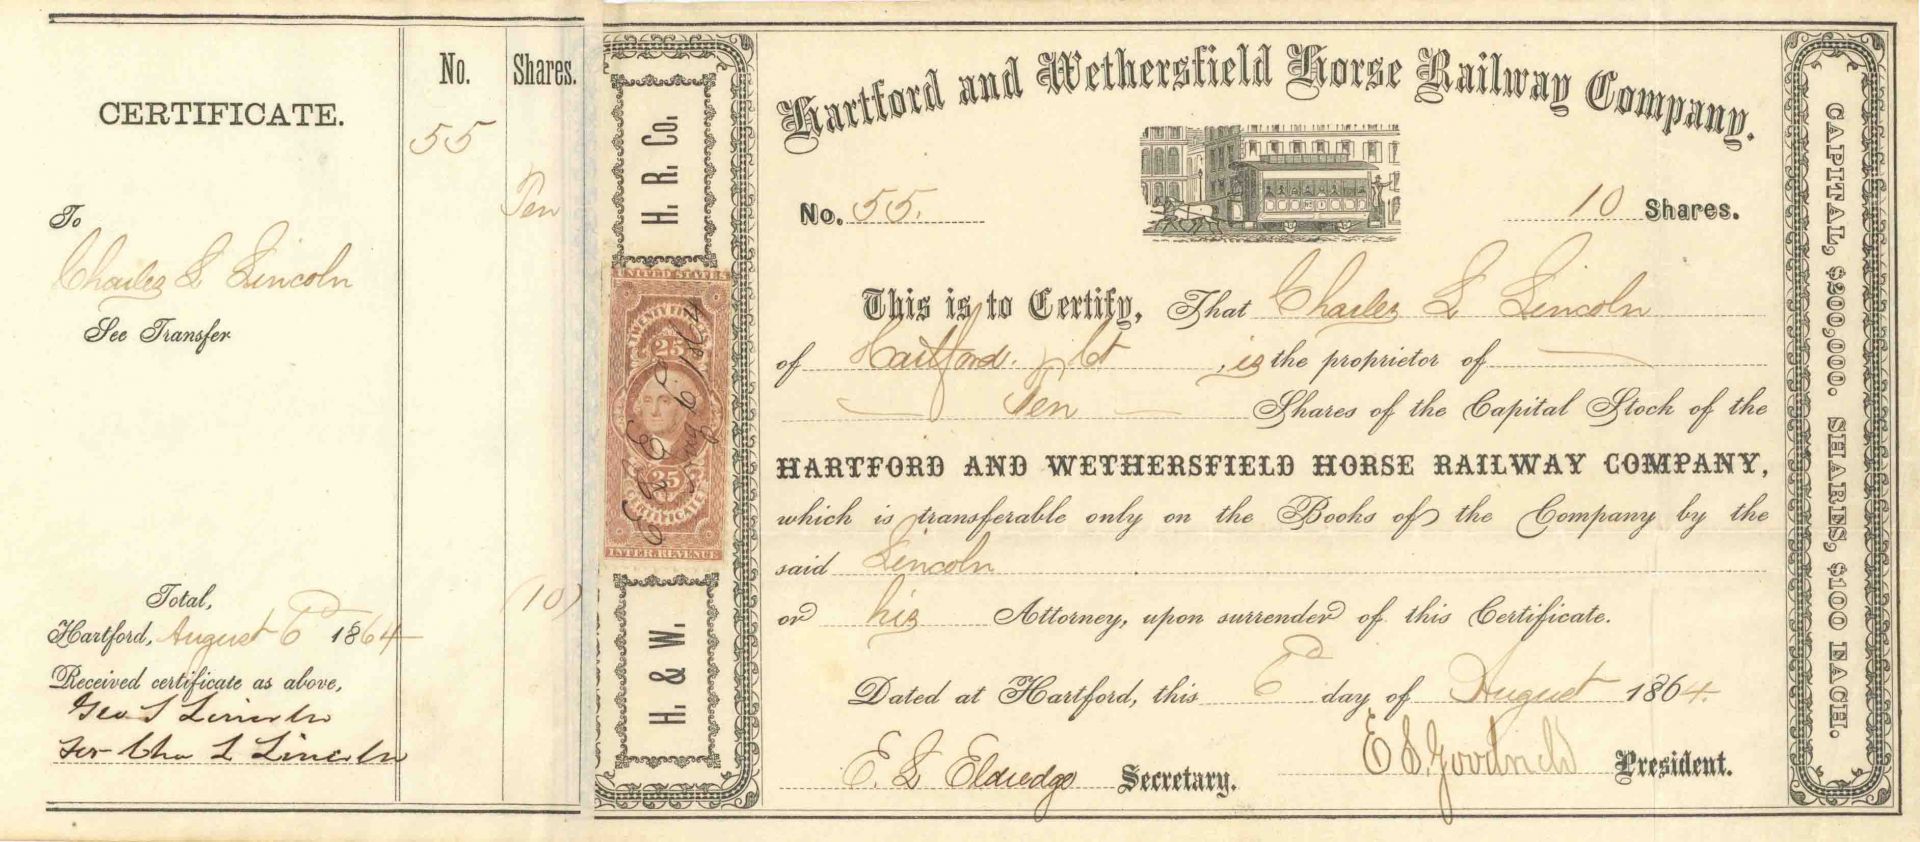 CERTIFICATE.
No.
Shares.
55
Ten
To
Charles L Lincoln
See Transfer
Total,
(10)
Hartford, August 6 1864
Received certificate as above,
Geo S Lincoln
for Chas L Lincoln
H. R. Co.
UNITED STATES
TWENTY FIVE CENTS
25
25
CERTIFICATE
INTER. REVENUE
H. & W.
Hartford and Wethersfield Horse Railway Company.
No. 55.
10 Shares.
This is to Certify, That Charles L Lincoln
of Hartford. Ct , is the proprietor of
Ten Shares of the Capital Stock of the
HARTFORD AND WETHERSFIELD HORSE RAILWAY COMPANY,
which is transferable only on the Books of the Company by the
said Lincoln
or his Attorney, upon surrender of this Certificate.
Dated at Hartford, this 6 day of August 1864.
E. S. Goodrich President.
Secretary.
CAPITAL, $200,000. SHARES, $100 EACH.